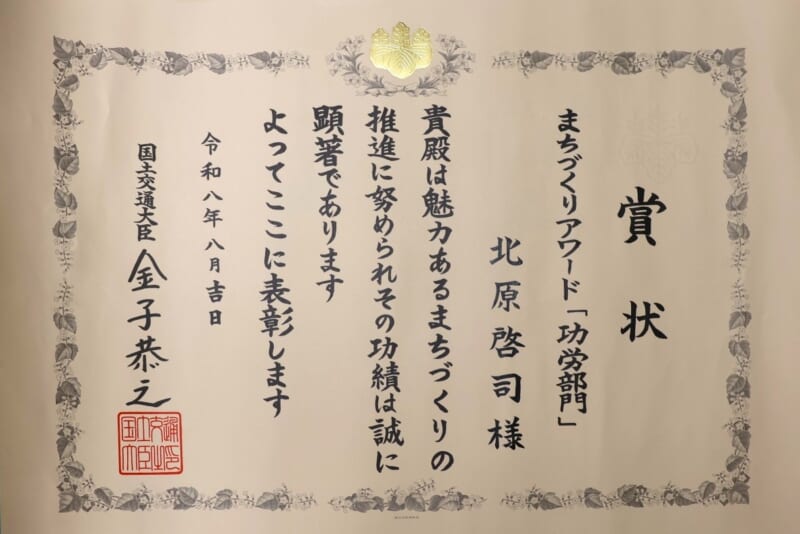 賞状
まちづくりアワード「功労部門」
北原啓司様
貴殿は魅力あるまちづくりの
推進に努められその功績は誠に
顕著であります
よってここに表彰します
令和八年八月吉日
国土交通大臣 金子恭之